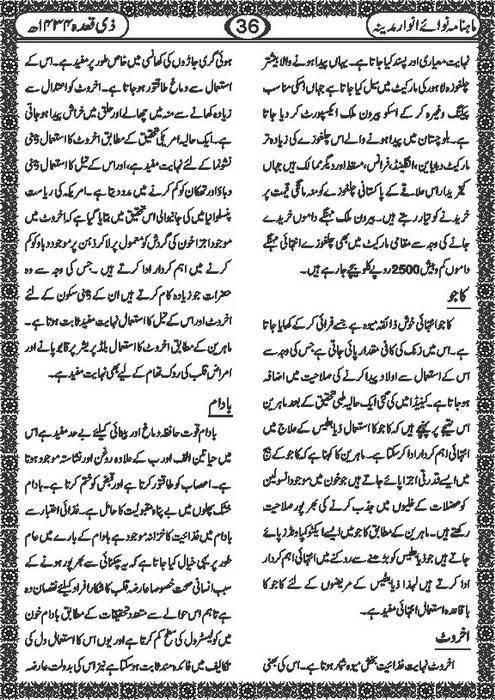 ماہنامہ نوائے انوار مدینہ
36
ذی قعدہ ۱۴۳۴ھ
نہایت معیاری اور پسند کیا جاتا ہے۔ یہاں پیدا ہونے والا بیشتر
چلغوزہ لاہور کی مارکیٹ میں سیل کیا جاتا ہے جہاں اسکی مناسب
پیکنگ وغیرہ کر کے اسکو بیرون ملک ایکسپورٹ کر دیا جاتا
ہے۔ بلوچستان میں پیدا ہونے والے اس چلغوزے کی زیادہ تر
مارکیٹ دبئی، انگلینڈ، فرانس، مسقط اور دیگر ممالک ہیں جہاں
کے خریدار اس علاقے کے پاکستانی چلغوزے کو منہ مانگی قیمت پر
خریدنے کو تیار رہتے ہیں۔ بیرون ملک مہنگے داموں خریدے
جانے کی وجہ سے مقامی مارکیٹ میں بھی چلغوزے انتہائی مہنگے
داموں کم و بیش 2500 روپے کلو بیچے جا رہے ہیں۔
کاجو
کاجو انتہائی خوش ذائقہ میوہ ہے جسے فرائی کر کے کھایا جاتا
ہے۔ اس میں زنک کی کافی مقدار پائی جاتی ہے جس کی وجہ سے
اس کے استعمال سے اولاد پیدا کرنے کی صلاحیت میں اضافہ
ہو جاتا ہے۔ کینیڈا میں کی گئی ایک حالیہ طبی تحقیق کے بعد ماہرین
اس نتیجے پر پہنچے ہیں کہ کاجو کا استعمال ذیابیطس کے علاج میں
انتہائی اہم کردار ادا کر سکتا ہے۔ ماہرین کا کہنا ہے کہ کاجو کے بیج
میں ایسے قدرتی اجزا پائے جاتے ہیں جو خون میں موجود انسولین
کو عضلات کے خلیوں میں جذب کرنے کی بھر پور صلاحیت
رکھتے ہیں۔ ماہرین کے مطابق کاجو میں ایسے ایکٹو کمپاؤنڈز پائے
جاتے ہیں جو ذیابیطس کو بڑھنے سے روکنے میں انتہائی اہم کردار
ادا کرتے ہیں لہذا ذیابیطس کے مریضوں کے لئے کاجو کا
باقاعدہ استعمال انتہائی مفید ہے۔
اخروٹ
اخروٹ نہایت غذائیت بخش میوہ شمار ہوتا ہے۔ اس کی بھنی
ہوئی گری جاڑوں کی کھانسی میں خاص طور پر مفید ہے۔ اس کے
استعمال سے دماغ طاقتور ہو جاتا ہے۔ اخروٹ کو اعتدال سے
زیادہ کھانے سے منہ میں چھالے اور حلق میں خراش پیدا ہو جاتی
ہے۔ ایک حالیہ امریکی تحقیق کے مطابق اخروٹ کا استعمال ذہنی
نشوونما کے لئے نہایت مفید ہے، اور اس کے تیل کا استعمال ذہنی
دباؤ اور تھکان کو کم کرنے میں مدد دیتا ہے۔ امریکہ کی ریاست
پنسلوانیا میں کی جانیوالی اس تحقیق میں بتایا گیا ہے کہ اخروٹ میں
موجود اجزا خون کی گردش کو معمول پر لا کر ذہن پر موجود دباؤ کو کم
کرنے میں اہم کردار ادا کرتے ہیں۔ جس کی وجہ سے وہ
حضرات جو زیادہ کام کرتے ہیں ان کے ذہنی سکون کے لئے
اخروٹ اور اس کے تیل کا استعمال نہایت مفید ثابت ہوتا ہے۔
ماہرین کے مطابق اخروٹ کا استعمال بلڈ پریشر پر قابو پانے اور
امراض قلب کی روک تھام کے لیے بھی نہایت مفید ہے۔
بادام
بادام قوت حافظہ، دماغ اور بینائی کیلئے بے حد مفید ہے اس
میں حیاتین الف اور ب کے علاوہ روغن اور نشاستہ موجود ہوتا
ہے۔ اعصاب کو طاقتور کرتا ہے اور قبض کو ختم کرتا ہے۔ بادام
خشک پھلوں میں بے پناہ مقبولیت کا حامل ہے۔ غذائی اعتبار سے
بادام میں غذائیت کا خزانہ موجود ہے بادام کے بارے میں عام
طور پر یہی خیال کیا جاتا ہے کہ یہ چکنائی سے بھر پور ہونے کے
سبب انسانی صحت خصوصا عارضہ قلب کا شکار افراد کیلئے نقصان دہ
ہے تاہم اس حوالے سے متعدد تحقیقات کے مطابق بادام خون
میں کولیسٹرول کی سطح کم کرتا ہے اور یوں اس کا استعمال دل کی
تکالیف میں فائدہ مند ثابت ہو سکتا ہے نیز اس کی بدولت عارضہ